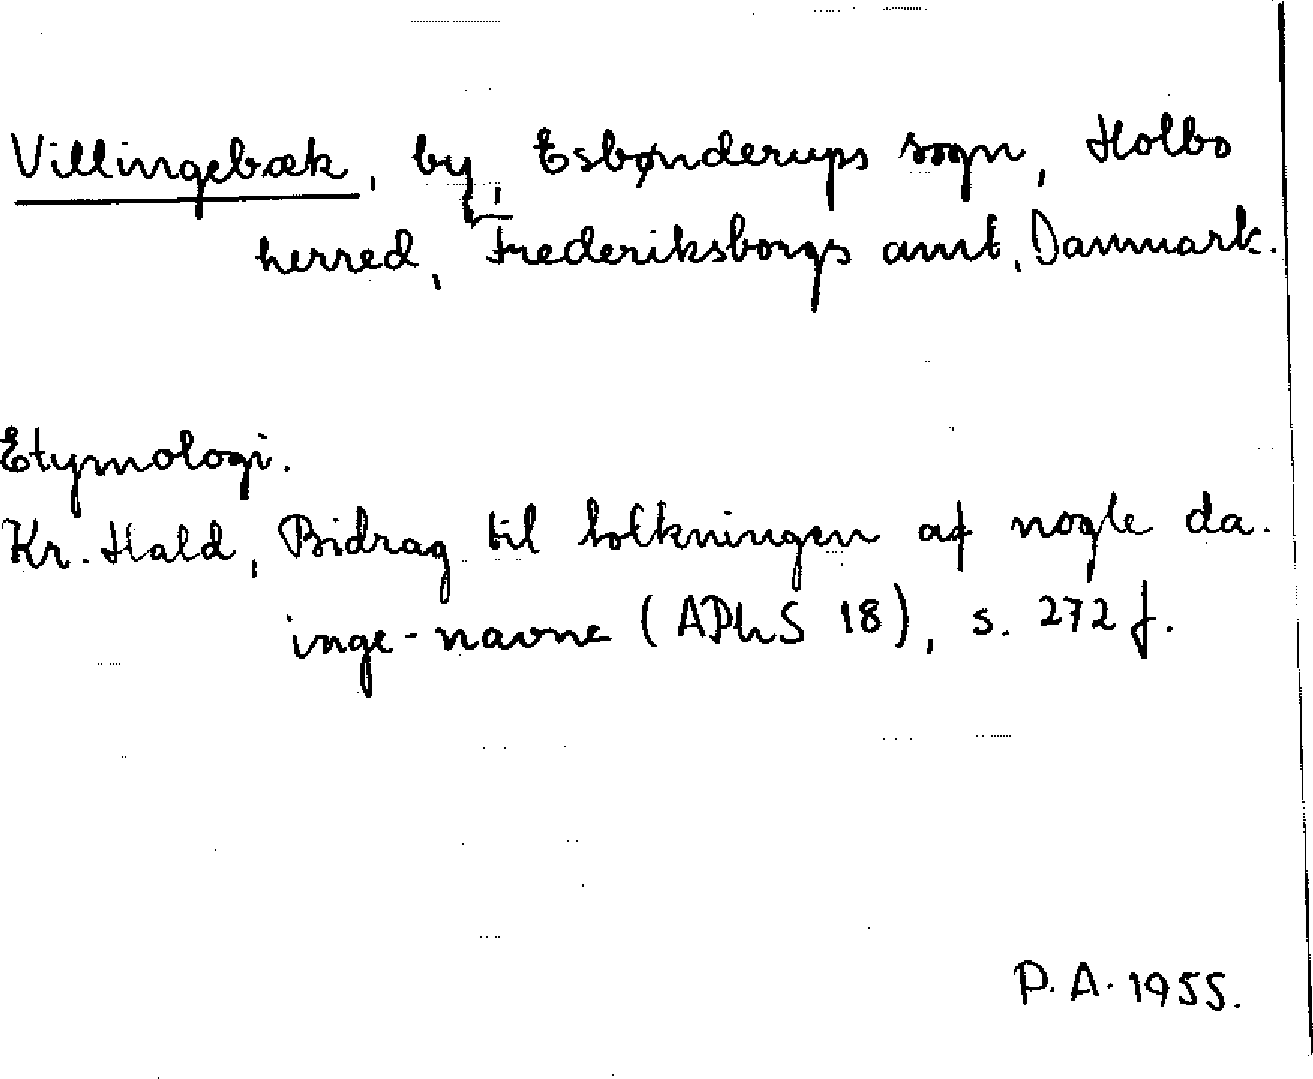 Villingebæk, by, Esbønderups sogn, Holbo
herred, Frederiksborgs amt, Danmark.
Etymologi.
Kr. Hald, Bidrag til tolkningen af nogle da.
inge-navne (APhS 18), s. 272 f.
P. A. 1955.